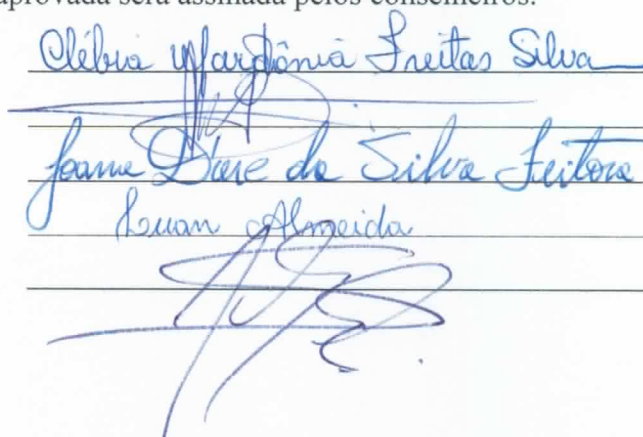 aprovada será assinada pelos conselheiros.
Clébia Mardônia Freitas Silva
Joana D'arc da Silva Feitosa
Luan Almeida